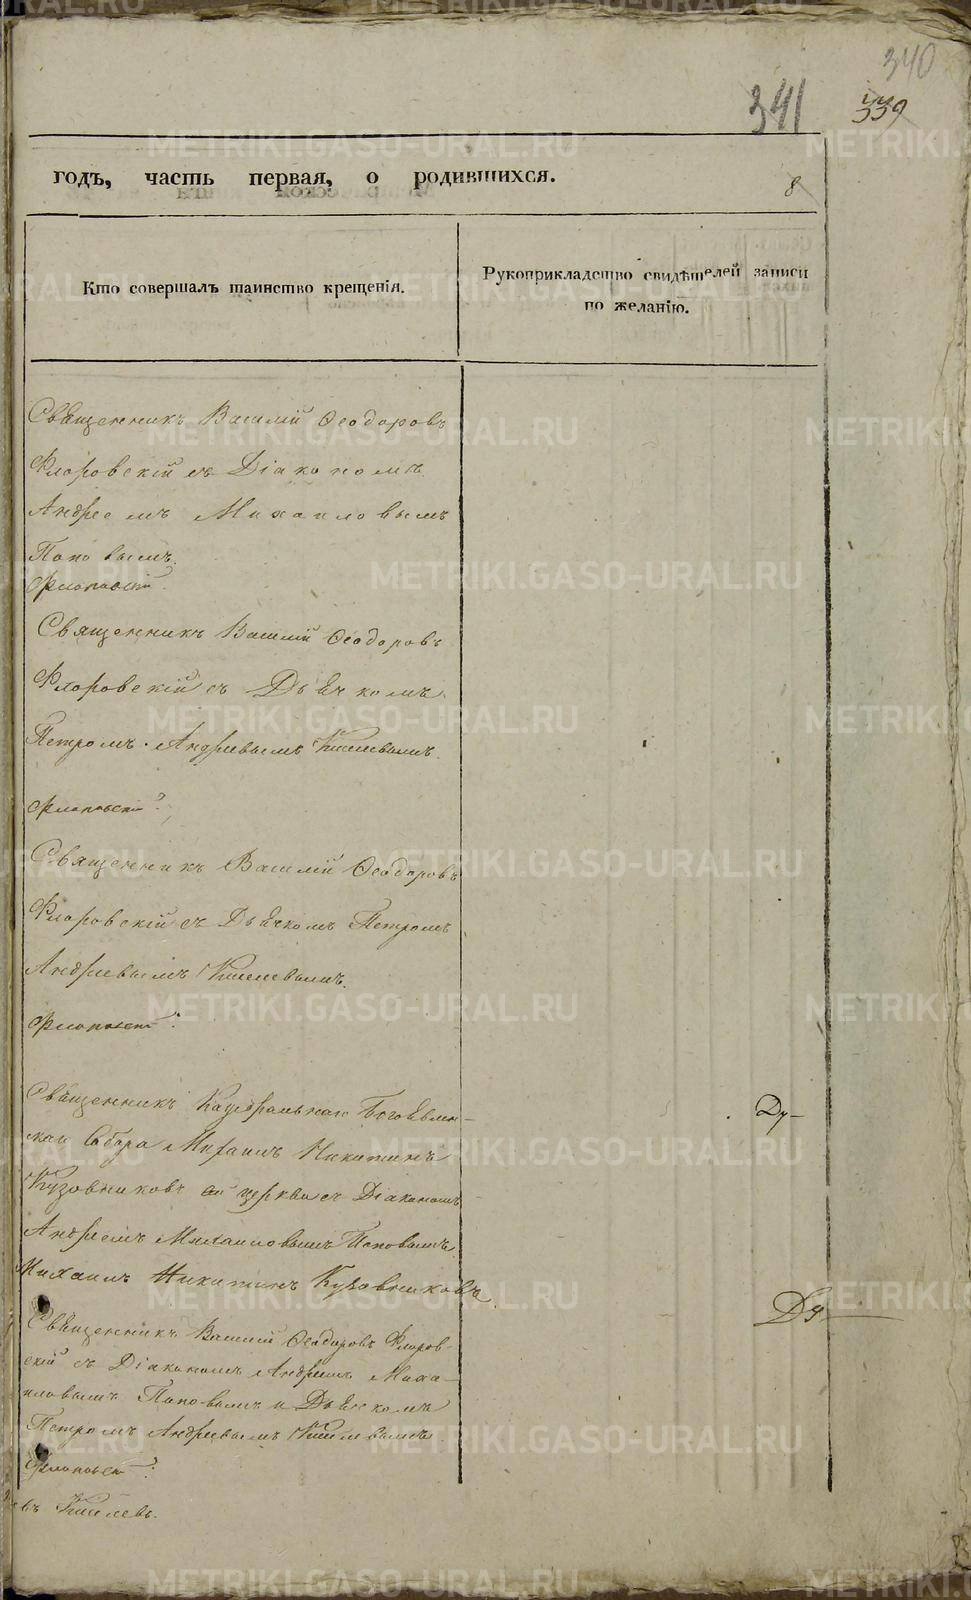 340
341
339
годъ, часть первая, о родившихся.
8
Кто совершалъ таинство крещенія.
Рукоприкладство свидѣтелей записи
по желанію.
Свѣщенникъ Василій Ѳеодоровъ
Флоровскій съ Діакономъ
Андреемъ Михаиловымъ
Поповымъ.
Священникъ Василій Ѳеодоровъ
Флоровскій съ Дьѣчкомъ
Петромъ Андріевымъ Киселевымъ.
Священникъ Василій Ѳеодоровъ
Флоровскій съ Дьѣчкомъ Петромъ
Андріевымъ Киселевымъ.
Свѣщенникъ Каѳедральнаго Богоѣвлен-
Собора Михаилъ Никитинъ
Кузовниковъ церкви съ Діакономъ
Андріемъ Михаиловымъ Поповымъ
Михаилъ Никитинъ Кузовниковъ.
Свѣщенникъ Василій Ѳеодоровъ Флоров-
скій съ Діакономъ Андріемъ Миха-
иловымъ Поповымъ и Дьѣчкомъ
Петромъ Андріевымъ Киселевымъ
въ Киселевъ.
METRIKI.GASO-URAL.RU